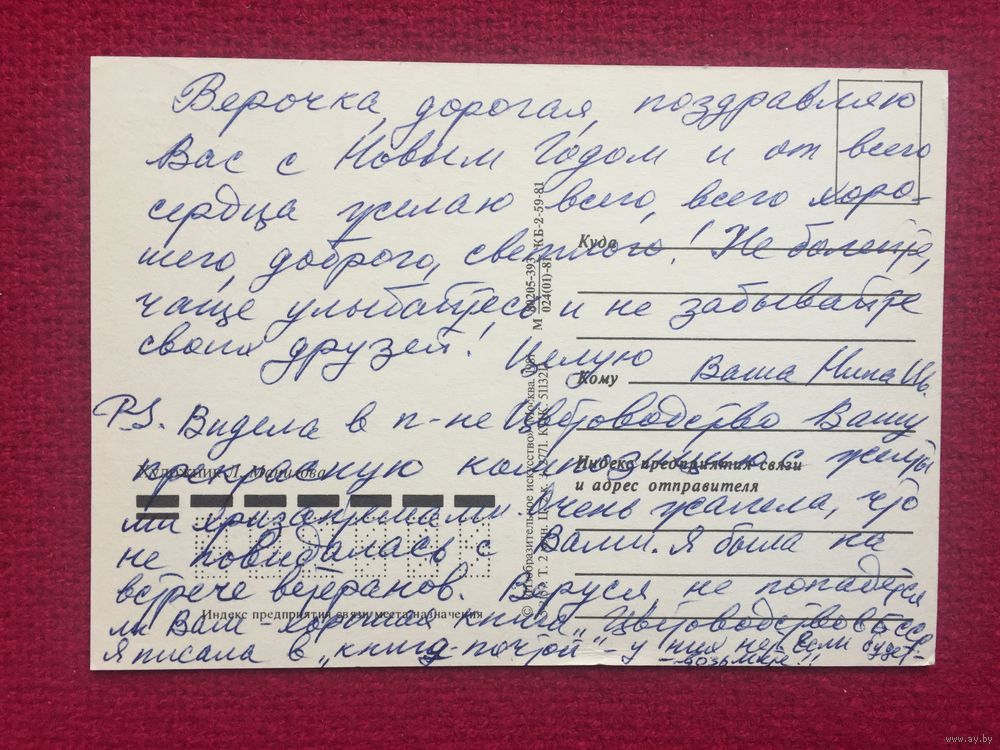 Верочка, дорогая, поздравляю
Вас с Новым Годом и от всего
сердца желаю всего, всего хоро-
шего, доброго, светлого! Не болейте,
чаще улыбайтесь и не забывайте
своих друзей! Целую
Ваша Нина Ив.
P.S. Видела в п-не Цветоводство Вашу
прекрасную композицию с желты
ми хризантемами. Очень жалела, что
не повидалась с Вами. Я была на
встрече ветеранов. Веруся, не попадется
ли Вам - хорошая книга „Цветоводство"
Я писала в „книга-почтой" - у них нет. Если будет -
- возьмите!!
Куда
Кому
Индекс предприятия связи
и адрес отправителя
Художник Л. Манилова
Индекс предприятия связи места назначения
М 80205-393 КБ-2-59-81
024(01)-81
© «Изобразительное искусство». Москва. 1981
www.ay.by